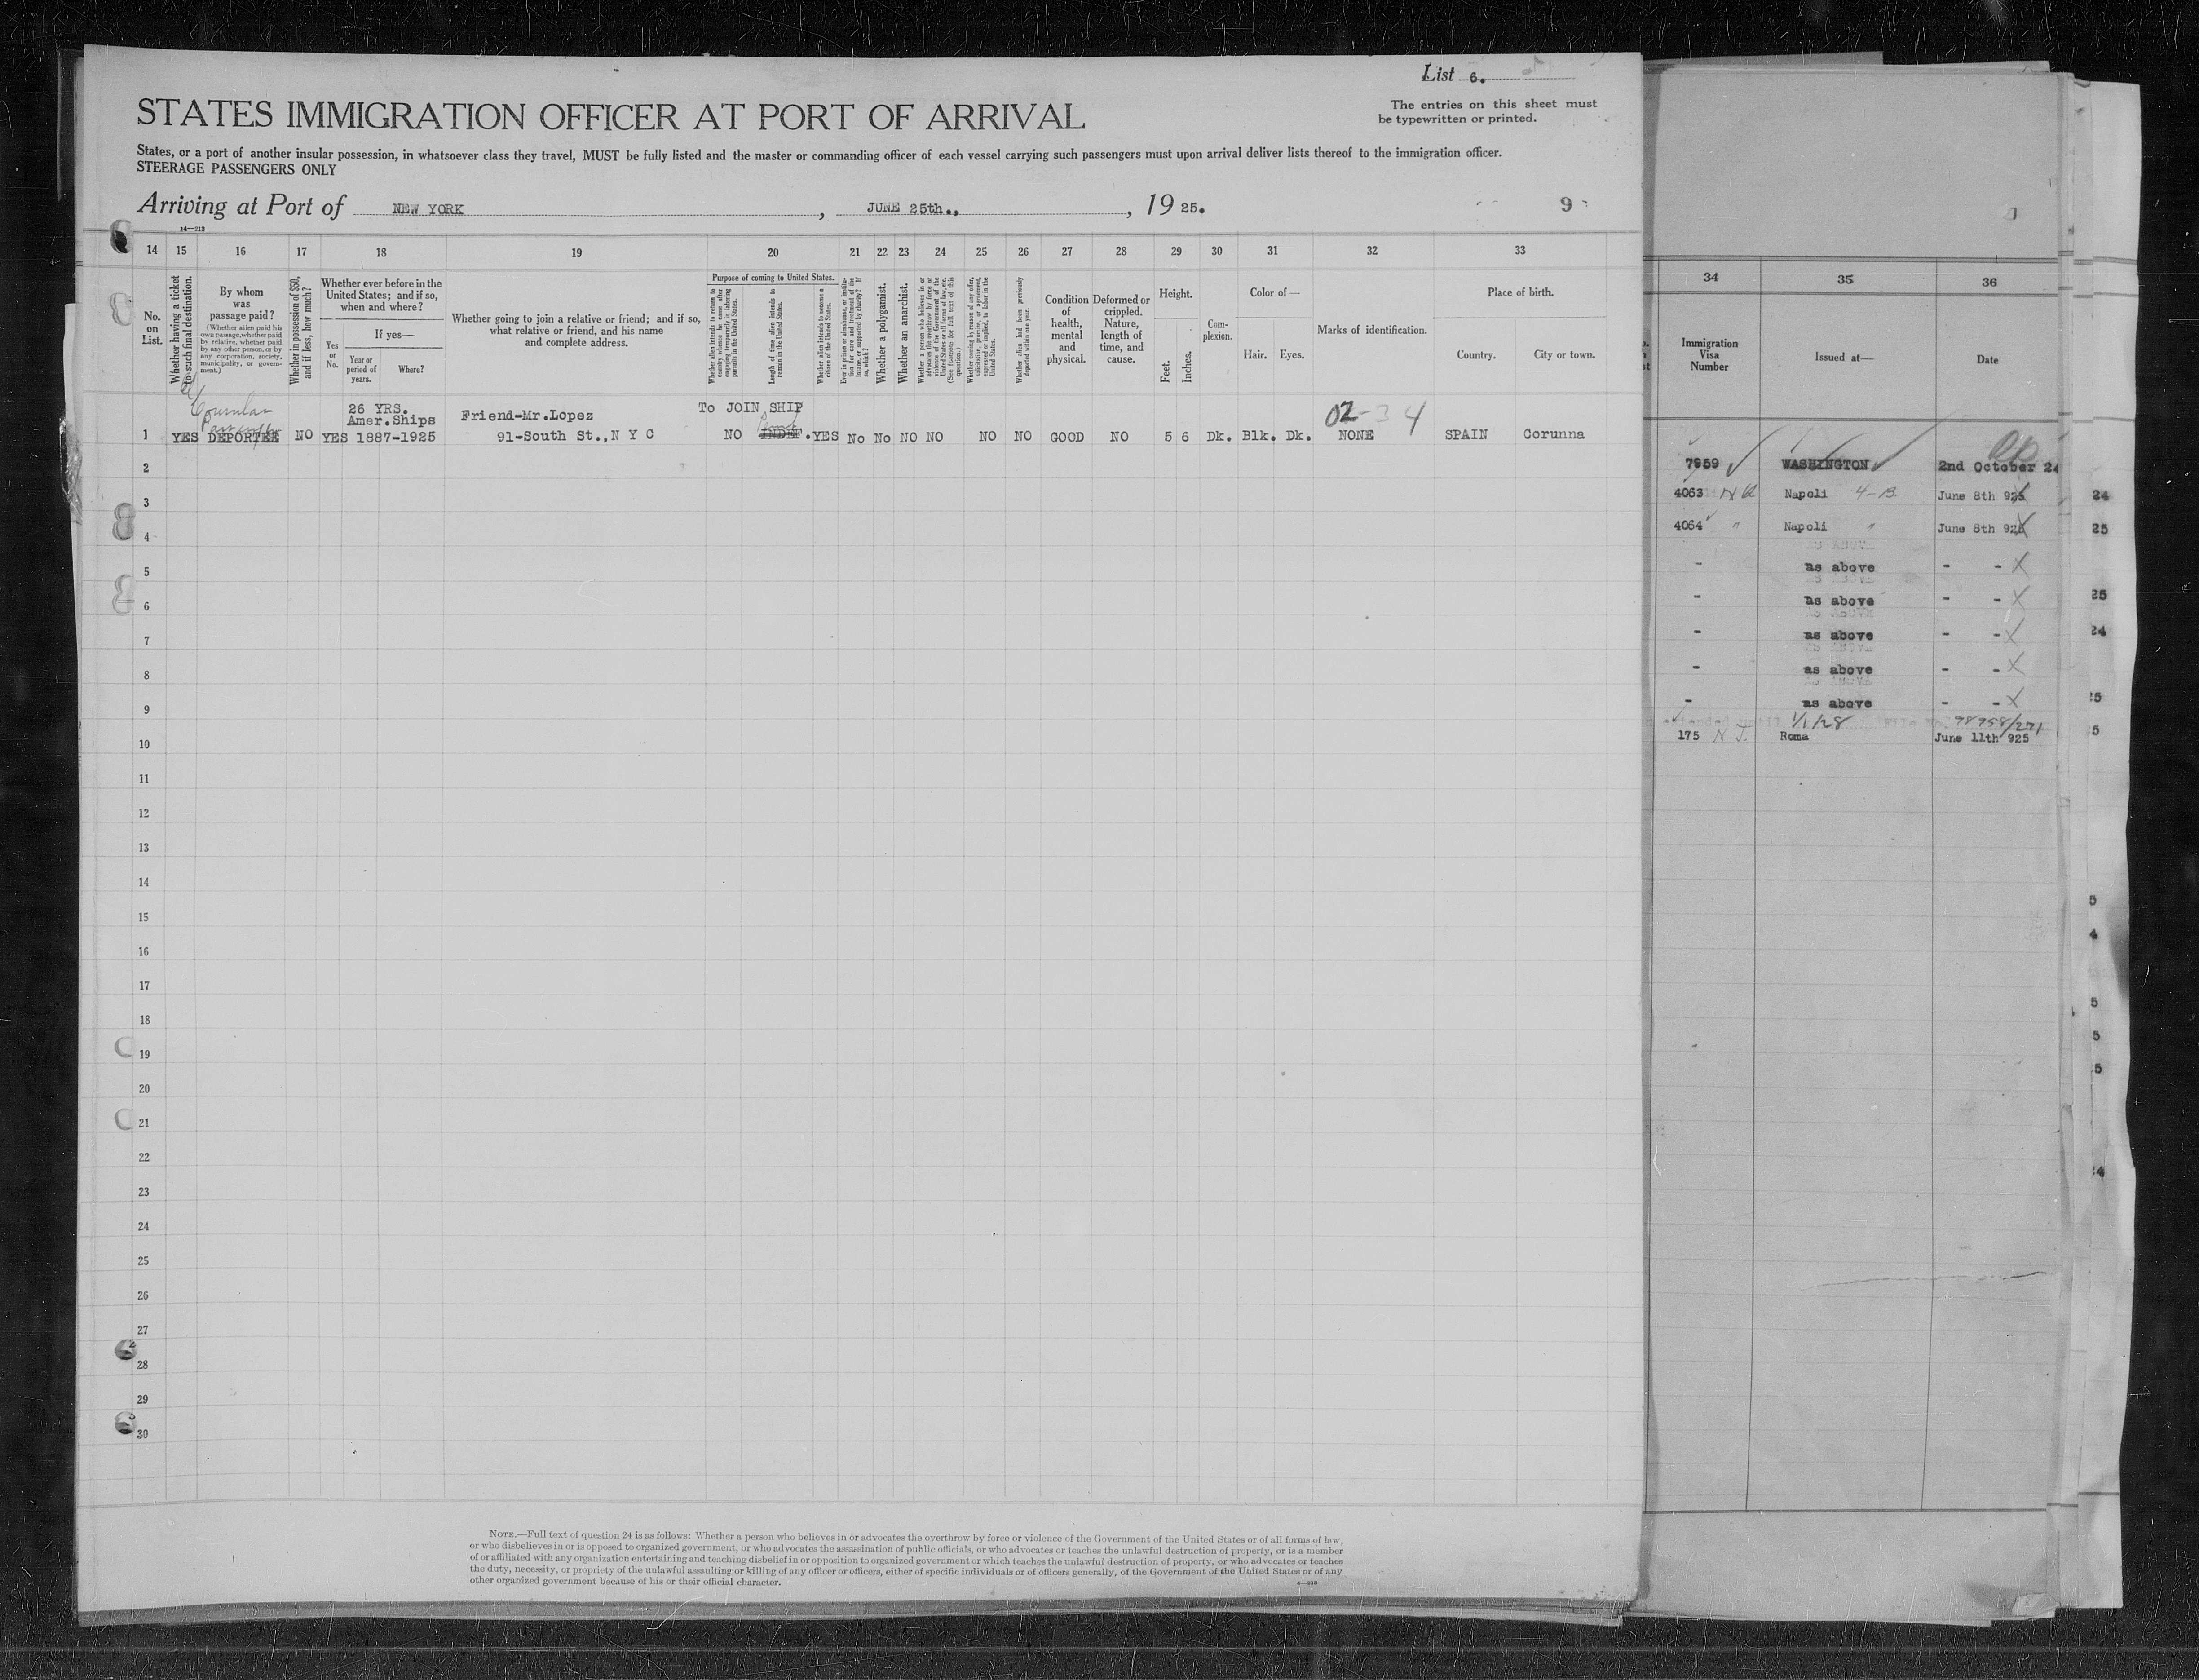 List 6.
The entries on this sheet must
be typewritten or printed.
STATES IMMIGRATION OFFICER AT PORT OF ARRIVAL
States, or a port of another insular possession, in whatsoever class they travel, MUST be fully listed and the master or commanding officer of each vessel carrying such passengers must upon arrival deliver lists thereof to the immigration officer.
STEERAGE PASSENGERS ONLY
Arriving at Port of NEW YORK, JUNE 25th., , 19 25.
9
14—213
14 15 16 17 18 19 20 21 22 23 24 25 26 27 28 29 30 31 32 33
No. on List.
Whether having a ticket to such final destination.
By whom was passage paid?
(Whether alien paid his own passage, whether paid by relative, whether paid by any other person, or by any corporation, society, municipality, or government.)
Whether in possession of $50, and if less, how much?
Whether ever before in the United States; and if so, when and where?
If yes—
Yes or No.
Year or period of years.
Where?
Whether going to join a relative or friend; and if so, what relative or friend, and his name and complete address.
Purpose of coming to United States.
Whether alien intends to return to country whence he came after engaging temporarily in laboring pursuits in the United States.
Length of time alien intends to remain in the United States.
Whether alien intends to become a citizen of the United States.
Ever in prison or almshouse, or institution for care and treatment of the insane, or supported by charity? If so, which?
Whether a polygamist.
Whether an anarchist.
Whether a person who believes in or advocates the overthrow by force or violence of the Government of the United States or all forms of law, etc. (See footnote for full text of this question.)
Whether coming by reason of any offer, solicitation, promise, or agreement, expressed or implied, to labor in the United States.
Whether alien had been previously deported within one year.
Condition of health, mental and physical.
Deformed or crippled. Nature, length of time, and cause.
Height.
Feet.
Inches.
Complexion.
Color of—
Hair. Eyes.
Marks of identification.
Place of birth.
Country. City or town.
26 YRS. To JOIN SHIP 02-34
Amer.Ships Friend-Mr.Lopez
1 YES DEPORTEE NO YES 1887-1925 91-South St.,N Y C NO INDEF. YES No No NO NO NO NO GOOD NO 5 6 Dk. Blk. Dk. NONE SPAIN Corunna
2
3
4
5
6
7
8
9
10
11
12
13
14
15
16
17
18
19
20
21
22
23
24
25
26
27
28
29
30
NOTE.—Full text of question 24 is as follows: Whether a person who believes in or advocates the overthrow by force or violence of the Government of the United States or of all forms of law,
or who disbelieves in or is opposed to organized government, or who advocates the assassination of public officials, or who advocates or teaches the unlawful destruction of property, or is a member
of or affiliated with any organization entertaining and teaching disbelief in or opposition to organized government or which teaches the unlawful destruction of property, or who advocates or teaches
the duty, necessity, or propriety of the unlawful assaulting or killing of any officer or officers, either of specific individuals or of officers generally, of the Government of the United States or of any
other organized government because of his or their official character.
34 35 36
Immigration Visa Number
Issued at—
Date
7959 WASHINGTON 2nd October 24
4063 Napoli 4-B June 8th 925
4064 " Napoli " June 8th 925
- as above - -
- as above - -
- as above - -
- as above - -
- as above - -
1/1/28 98758/271
175 N J. Roma June 11th 925
24
25
25
24
5
5
5
4
5
5
5
24